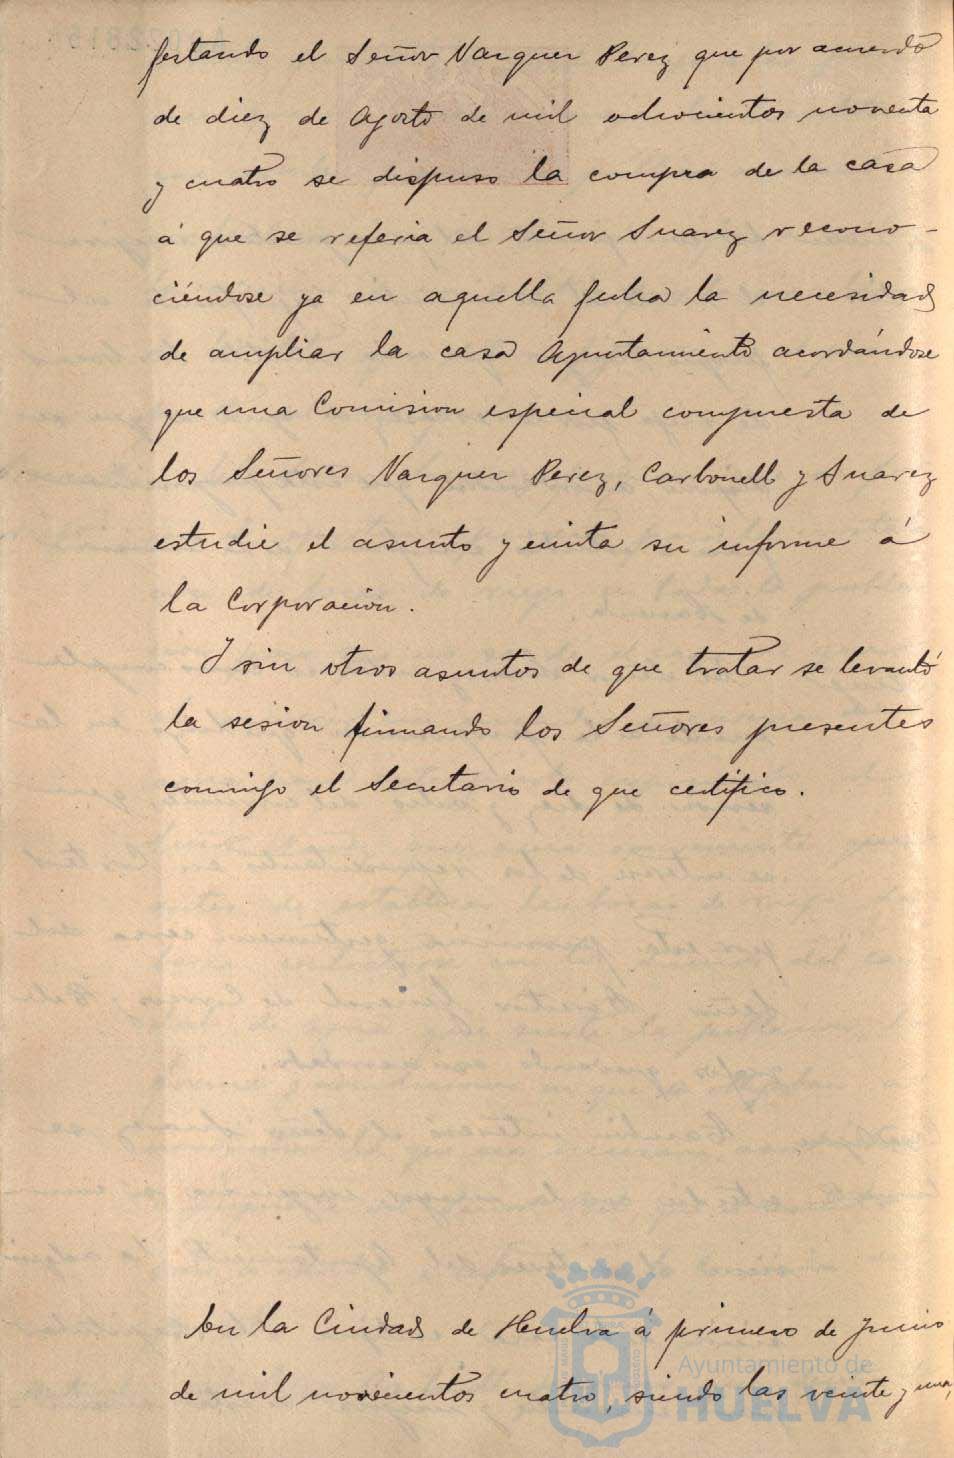 festando el Señor Vazquez Perez que por acuerdo
de diez de Agosto de mil ochocientos noventa
y cuatro se dispuso la compra de la casa
á que se referia el Señor Suarez recono-
ciéndose ya en aquella fecha la necesidad
de ampliar la casa Ayuntamiento acordándose
que una Comision especial compuesta de
los Señores Vazquez Perez, Carbonell y Suarez
estudie el asunto y emita su informe á
la Corporacion.
Y sin otros asuntos de que tratar se levantó
la sesion firmando los Señores presentes
conmigo el Secretario de que certifico.
En la Ciudad de Huelva á primero de Junio
de mil novecientos cuatro, siendo las veinte y una,
Ayuntamiento de
HUELVA